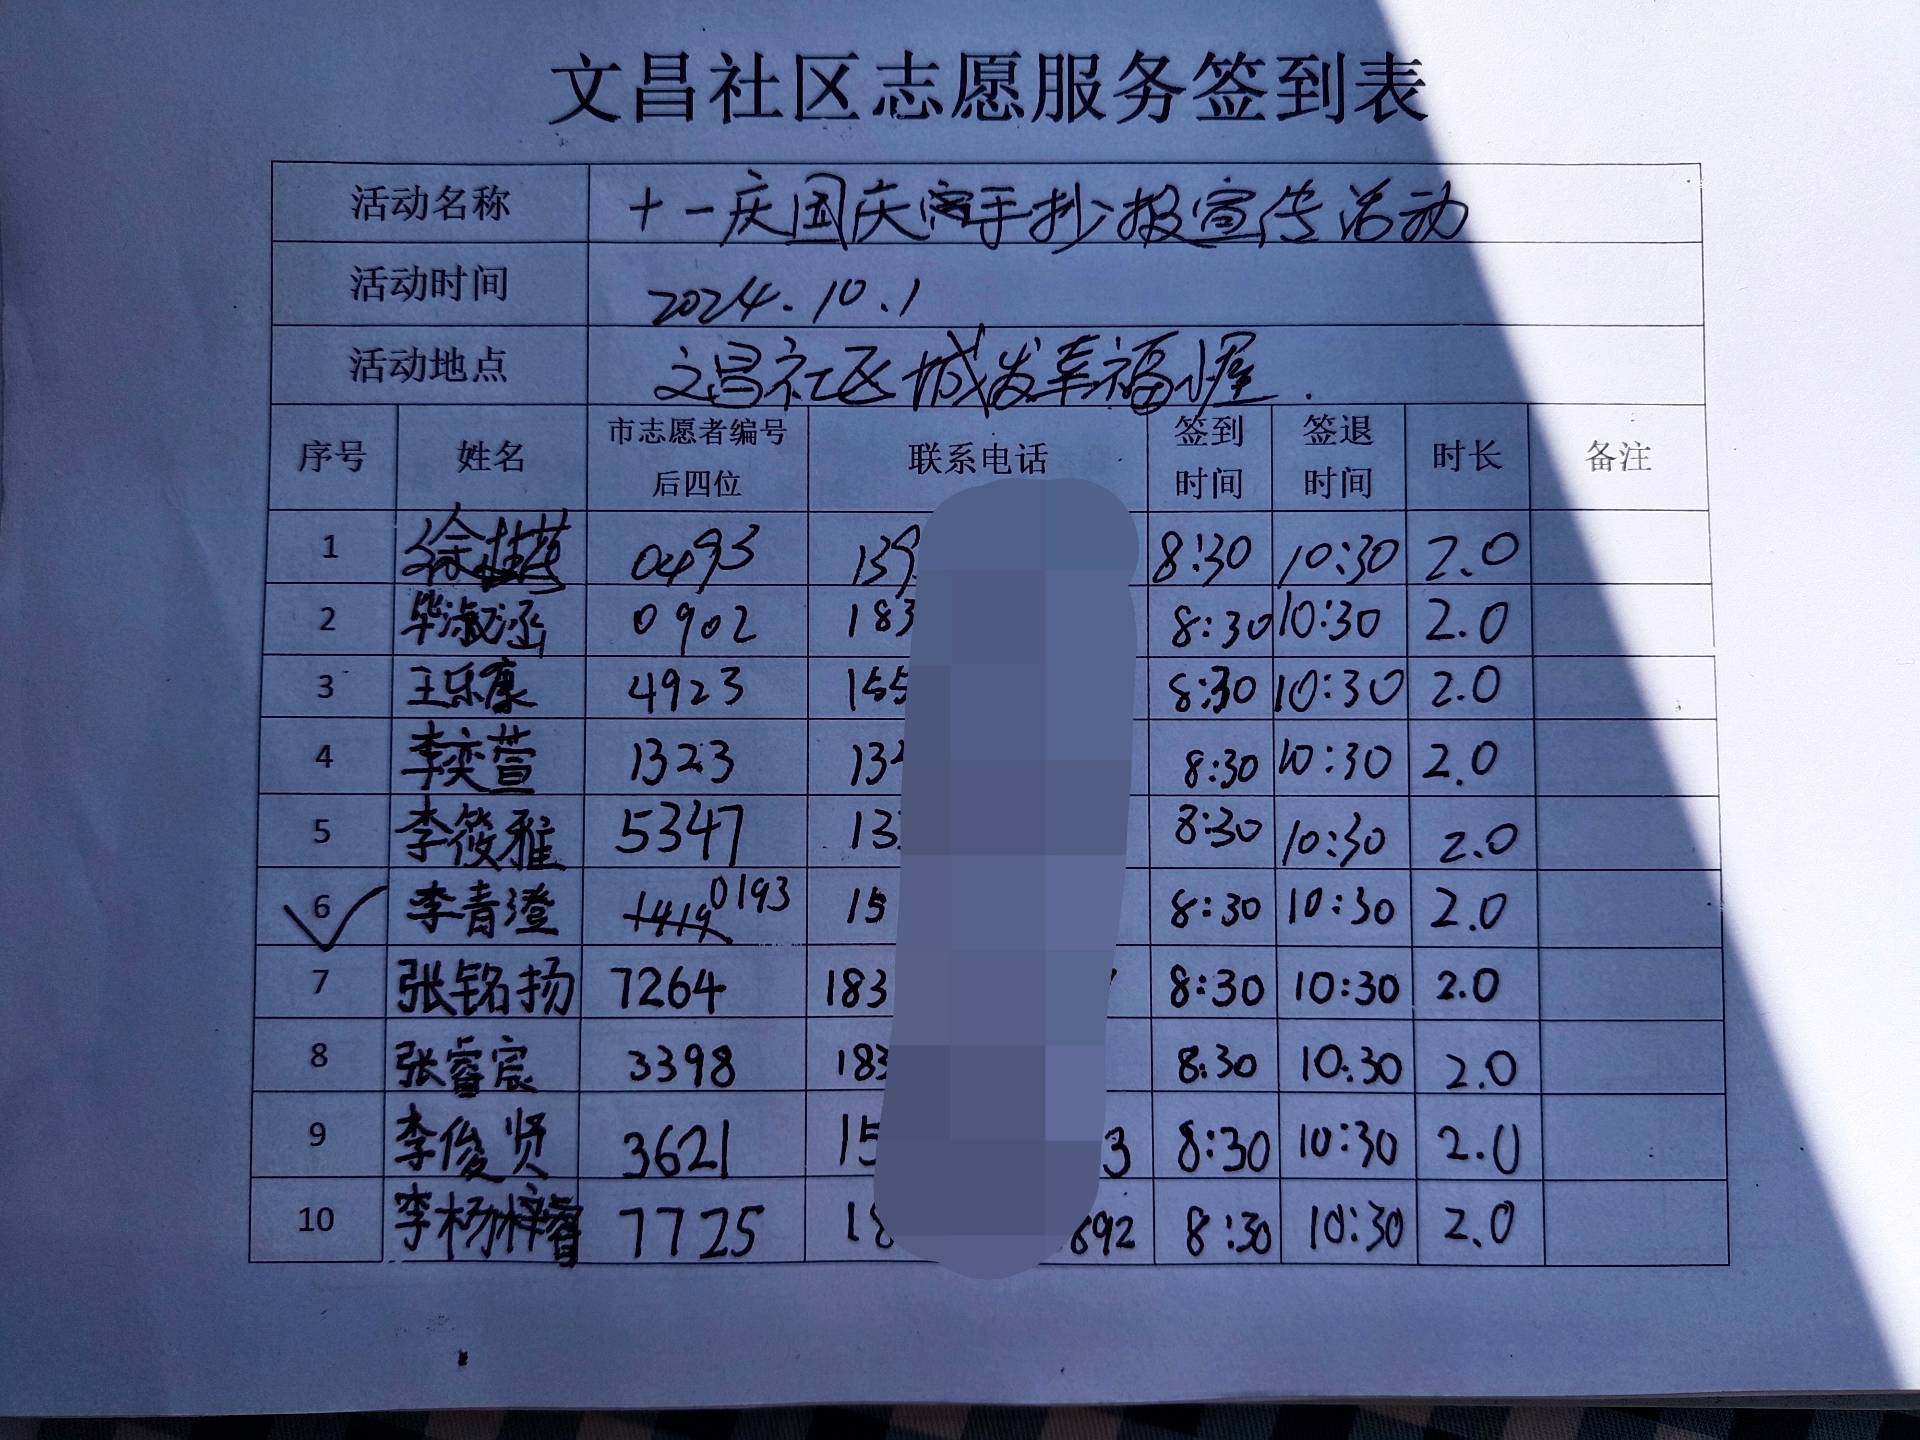 文昌社区志愿服务签到表
活动名称 十一庆国庆 手抄报宣传活动
活动时间 2024.10.1
活动地点 文昌社区城发幸福
序号 姓名 市志愿者编号后四位 联系电话 签到时间 签退时间 时长 备注
1 徐 0493 139 8:30 10:30 2.0
2 毕淑涵 0902 183 8:30 10:30 2.0
3 王乐康 4923 155 8:30 10:30 2.0
4 李奕萱 1323 13 8:30 10:30 2.0
5 李筱雅 5347 13 8:30 10:30 2.0
6 李青澄 1419 0193 15 8:30 10:30 2.0
7 张铭扬 7264 183 8:30 10:30 2.0
8 张睿宸 3398 183 8:30 10:30 2.0
9 李俊贤 3621 15 3 8:30 10:30 2.0
10 李杨梓睿 7725 18 692 8:30 10:30 2.0